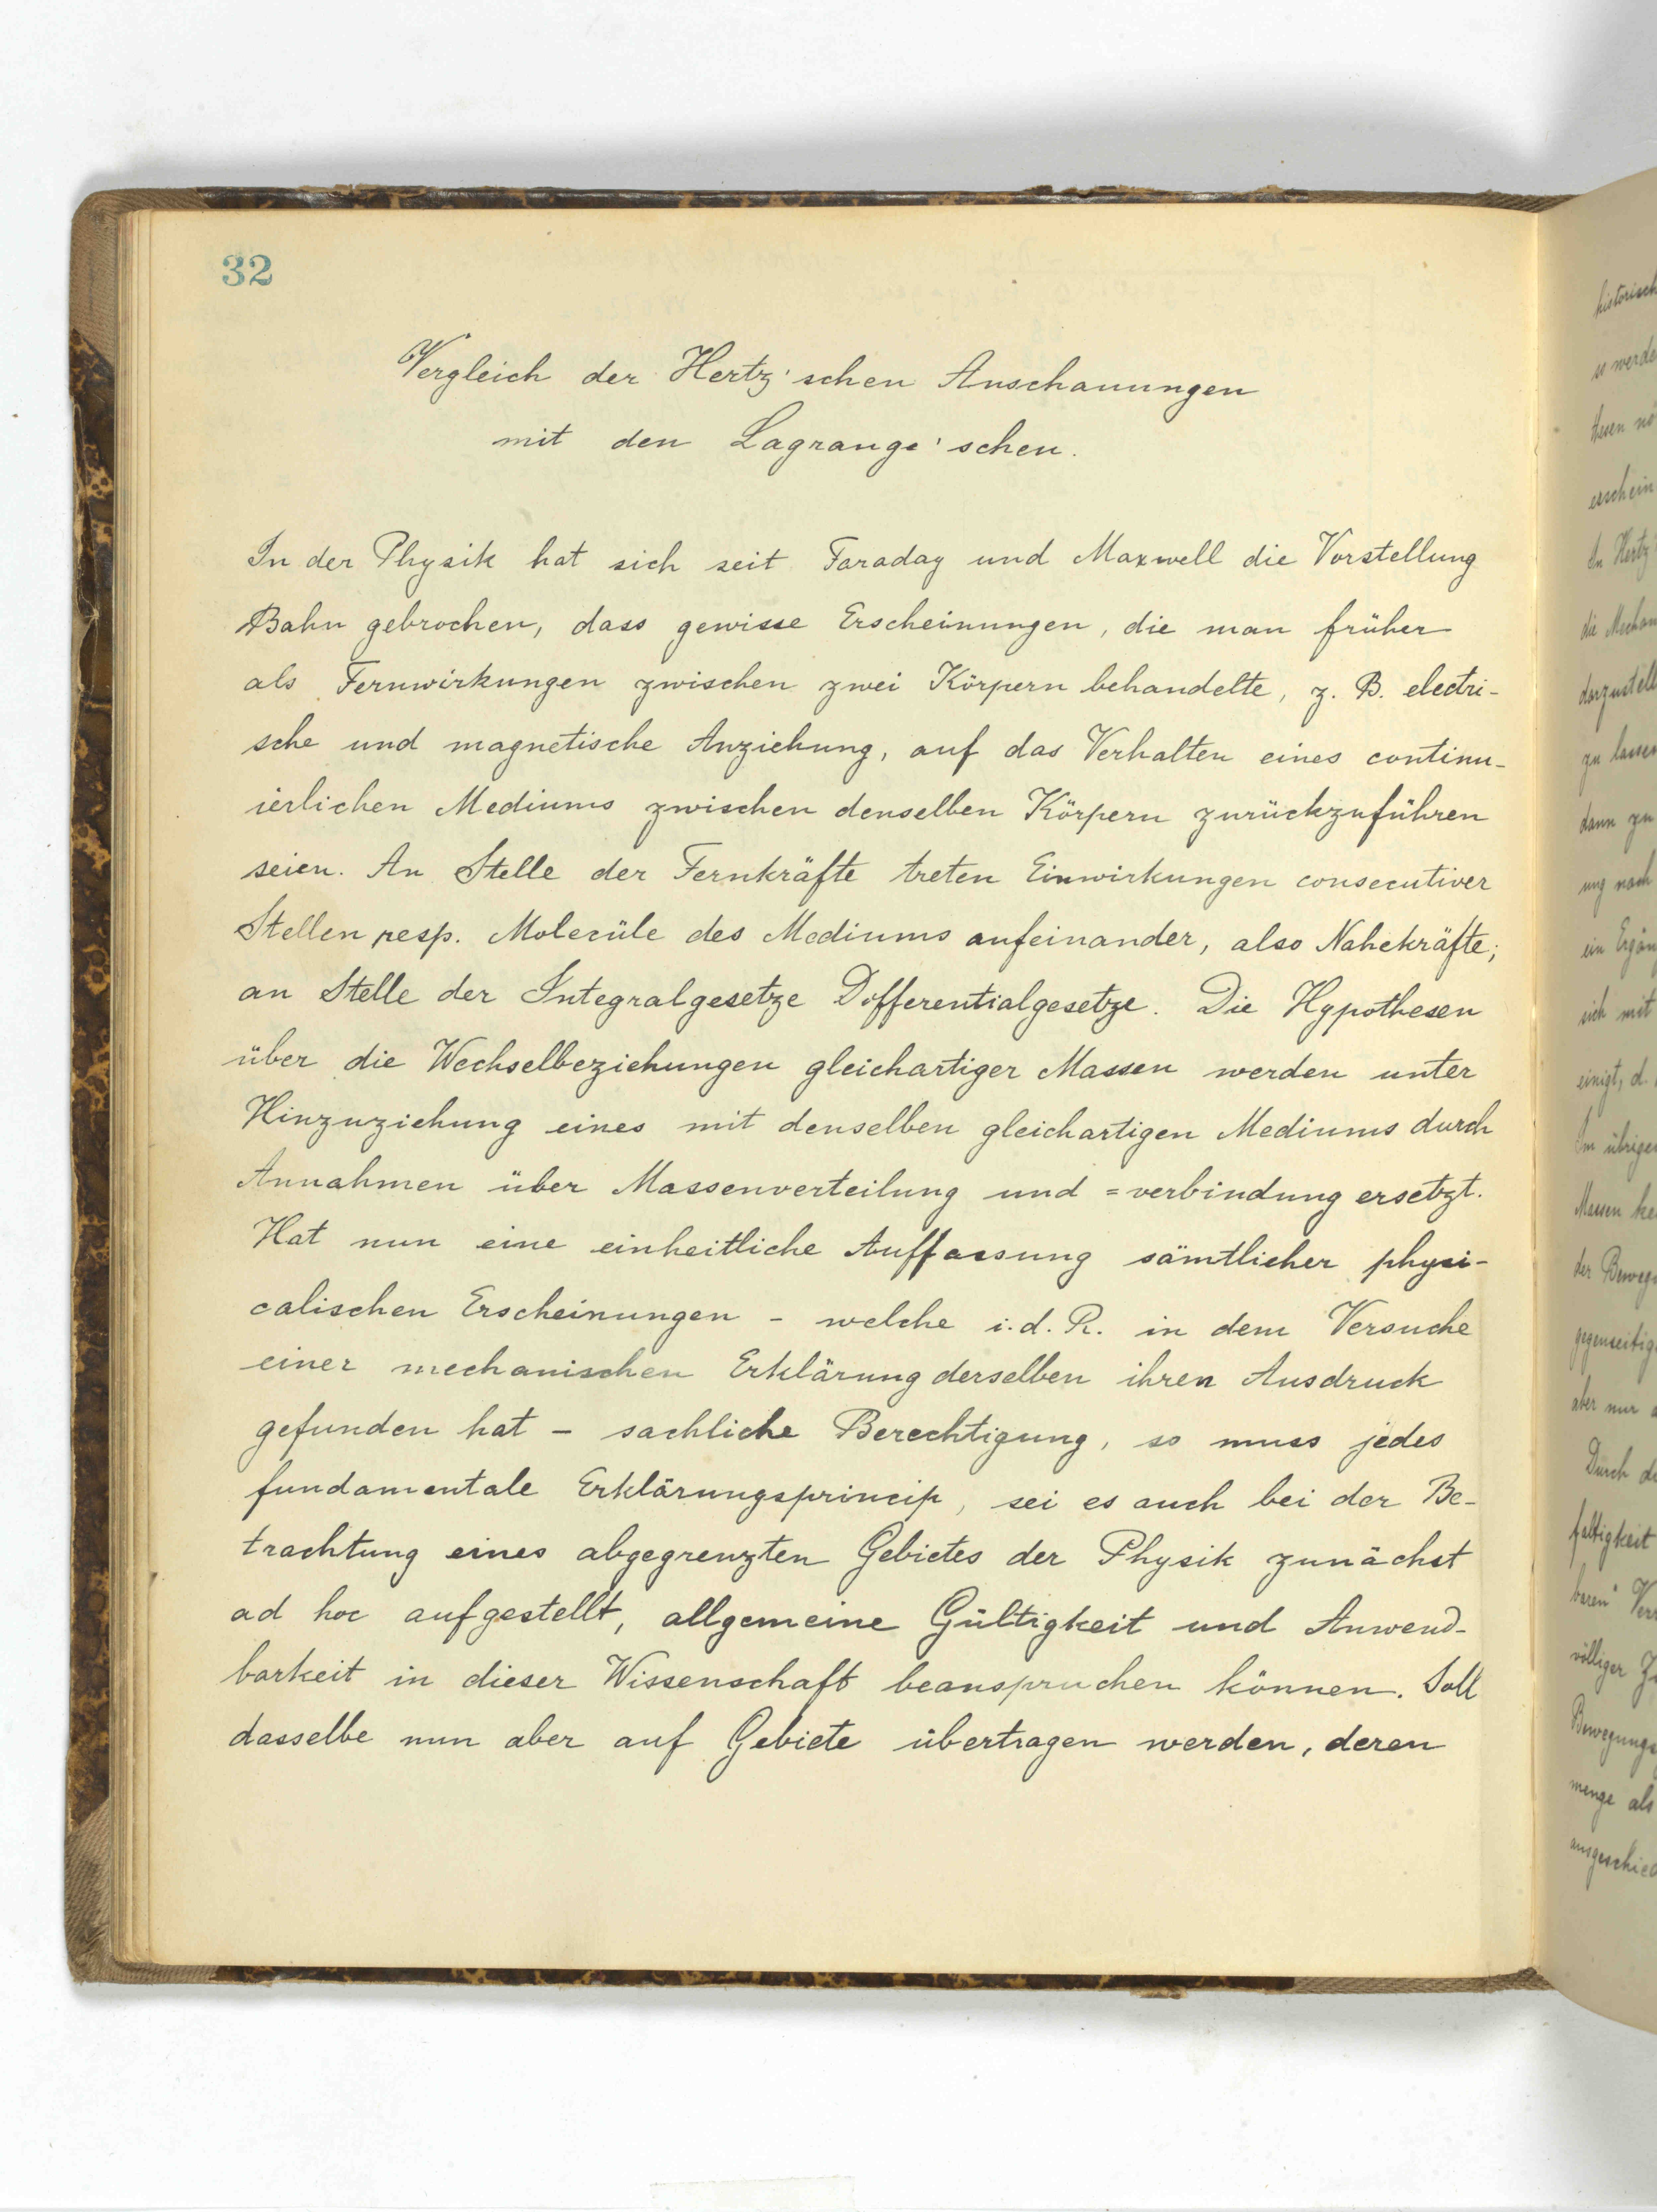 32
Vergleich der Hertz'schen Anschauungen
mit den Lagrange'schen.
In der Physik hat sich seit Faraday und Maxwell die Vorstellung
Bahn gebrochen, dass gewisse Erscheinungen, die man früher
als Fernwirkungen zwischen zwei Körpern behandelte, z. B. electri-
sche und magnetische Anziehung, auf das Verhalten eines continu-
ierlichen Mediums zwischen denselben Körpern zurückzuführen
seien. An Stelle der Fernkräfte treten Einwirkungen consecutiver
Stellen resp. Molecüle des Mediums aufeinander, also Nahekräfte;
an Stelle der Integralgesetze Differentialgesetze. Die Hypothesen
über die Wechselbeziehungen gleichartiger Massen werden unter
Hinzuziehung eines mit denselben gleichartigen Mediums durch
Annahmen über Massenverteilung und =verbindung ersetzt.
Hat nun eine einheitliche Auffassung sämtlicher physi-
calischen Erscheinungen - welche i. d. R. in dem Versuche
einer mechanischen Erklärung derselben ihren Ausdruck
gefunden hat - sachliche Berechtigung, so muss jedes
fundamentale Erklärungsprincip, sei es auch bei der Be-
trachtung eines abgegrenzten Gebietes der Physik zunächst
ad hoc aufgestellt, allgemeine Gültigkeit und Anwend-
barkeit in dieser Wissenschaft beanspruchen können. Soll
dasselbe nun aber auf Gebiete übertragen werden, deren
historisch
werde
thesen
erschein
In Hertz
die Mechan
darzustell
zu lassen
dann zu
ung nach
ein Ergän
sich mit
einigt, d.
Im übrigen
Massen ke
der Beweg
gegenseitig
aber nur
Durch
faltigkeit
baren" Ver
völliger
Bewegungs
menge als
ausgeschied